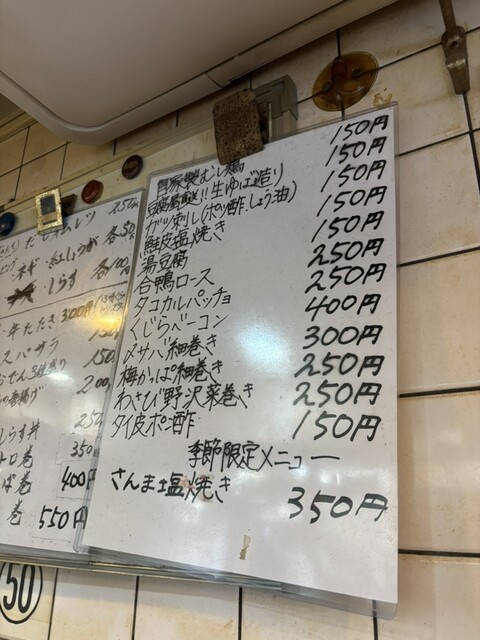 250
ネギ・紅しょうが 各50円
しらす 各100円
たたき 300円
150
150
揚げ 200
しらす丼 250
トロ巻 350
ば巻 400円
巻 550円
50
自家製むし鶏 150円
豆腐屋直送!!生ゆば造り 150円
ガツ刺し(ポン酢.しょう油) 150円
鮭皮塩焼き 150円
湯豆腐 150円
合鴨ロース 250円
タコカルパッチョ 250円
くじらベーコン 400円
〆サバ細巻き 300円
梅かっぱ細巻き 250円
わさび野沢菜巻き 250円
タイ皮ポン酢 150円
季節限定メニュー
さんま塩焼き 350円